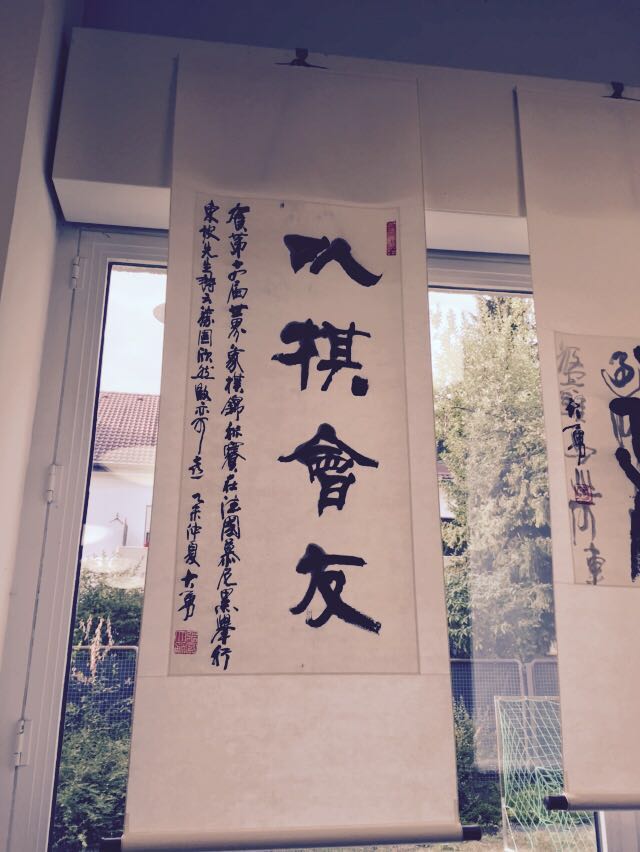 以棋會友
賀第十四届世界象棋錦标賽在德國慕尼黑舉行
東坡先生詩云勝固欣然敗亦可喜 乙未仲夏大勇
大勇